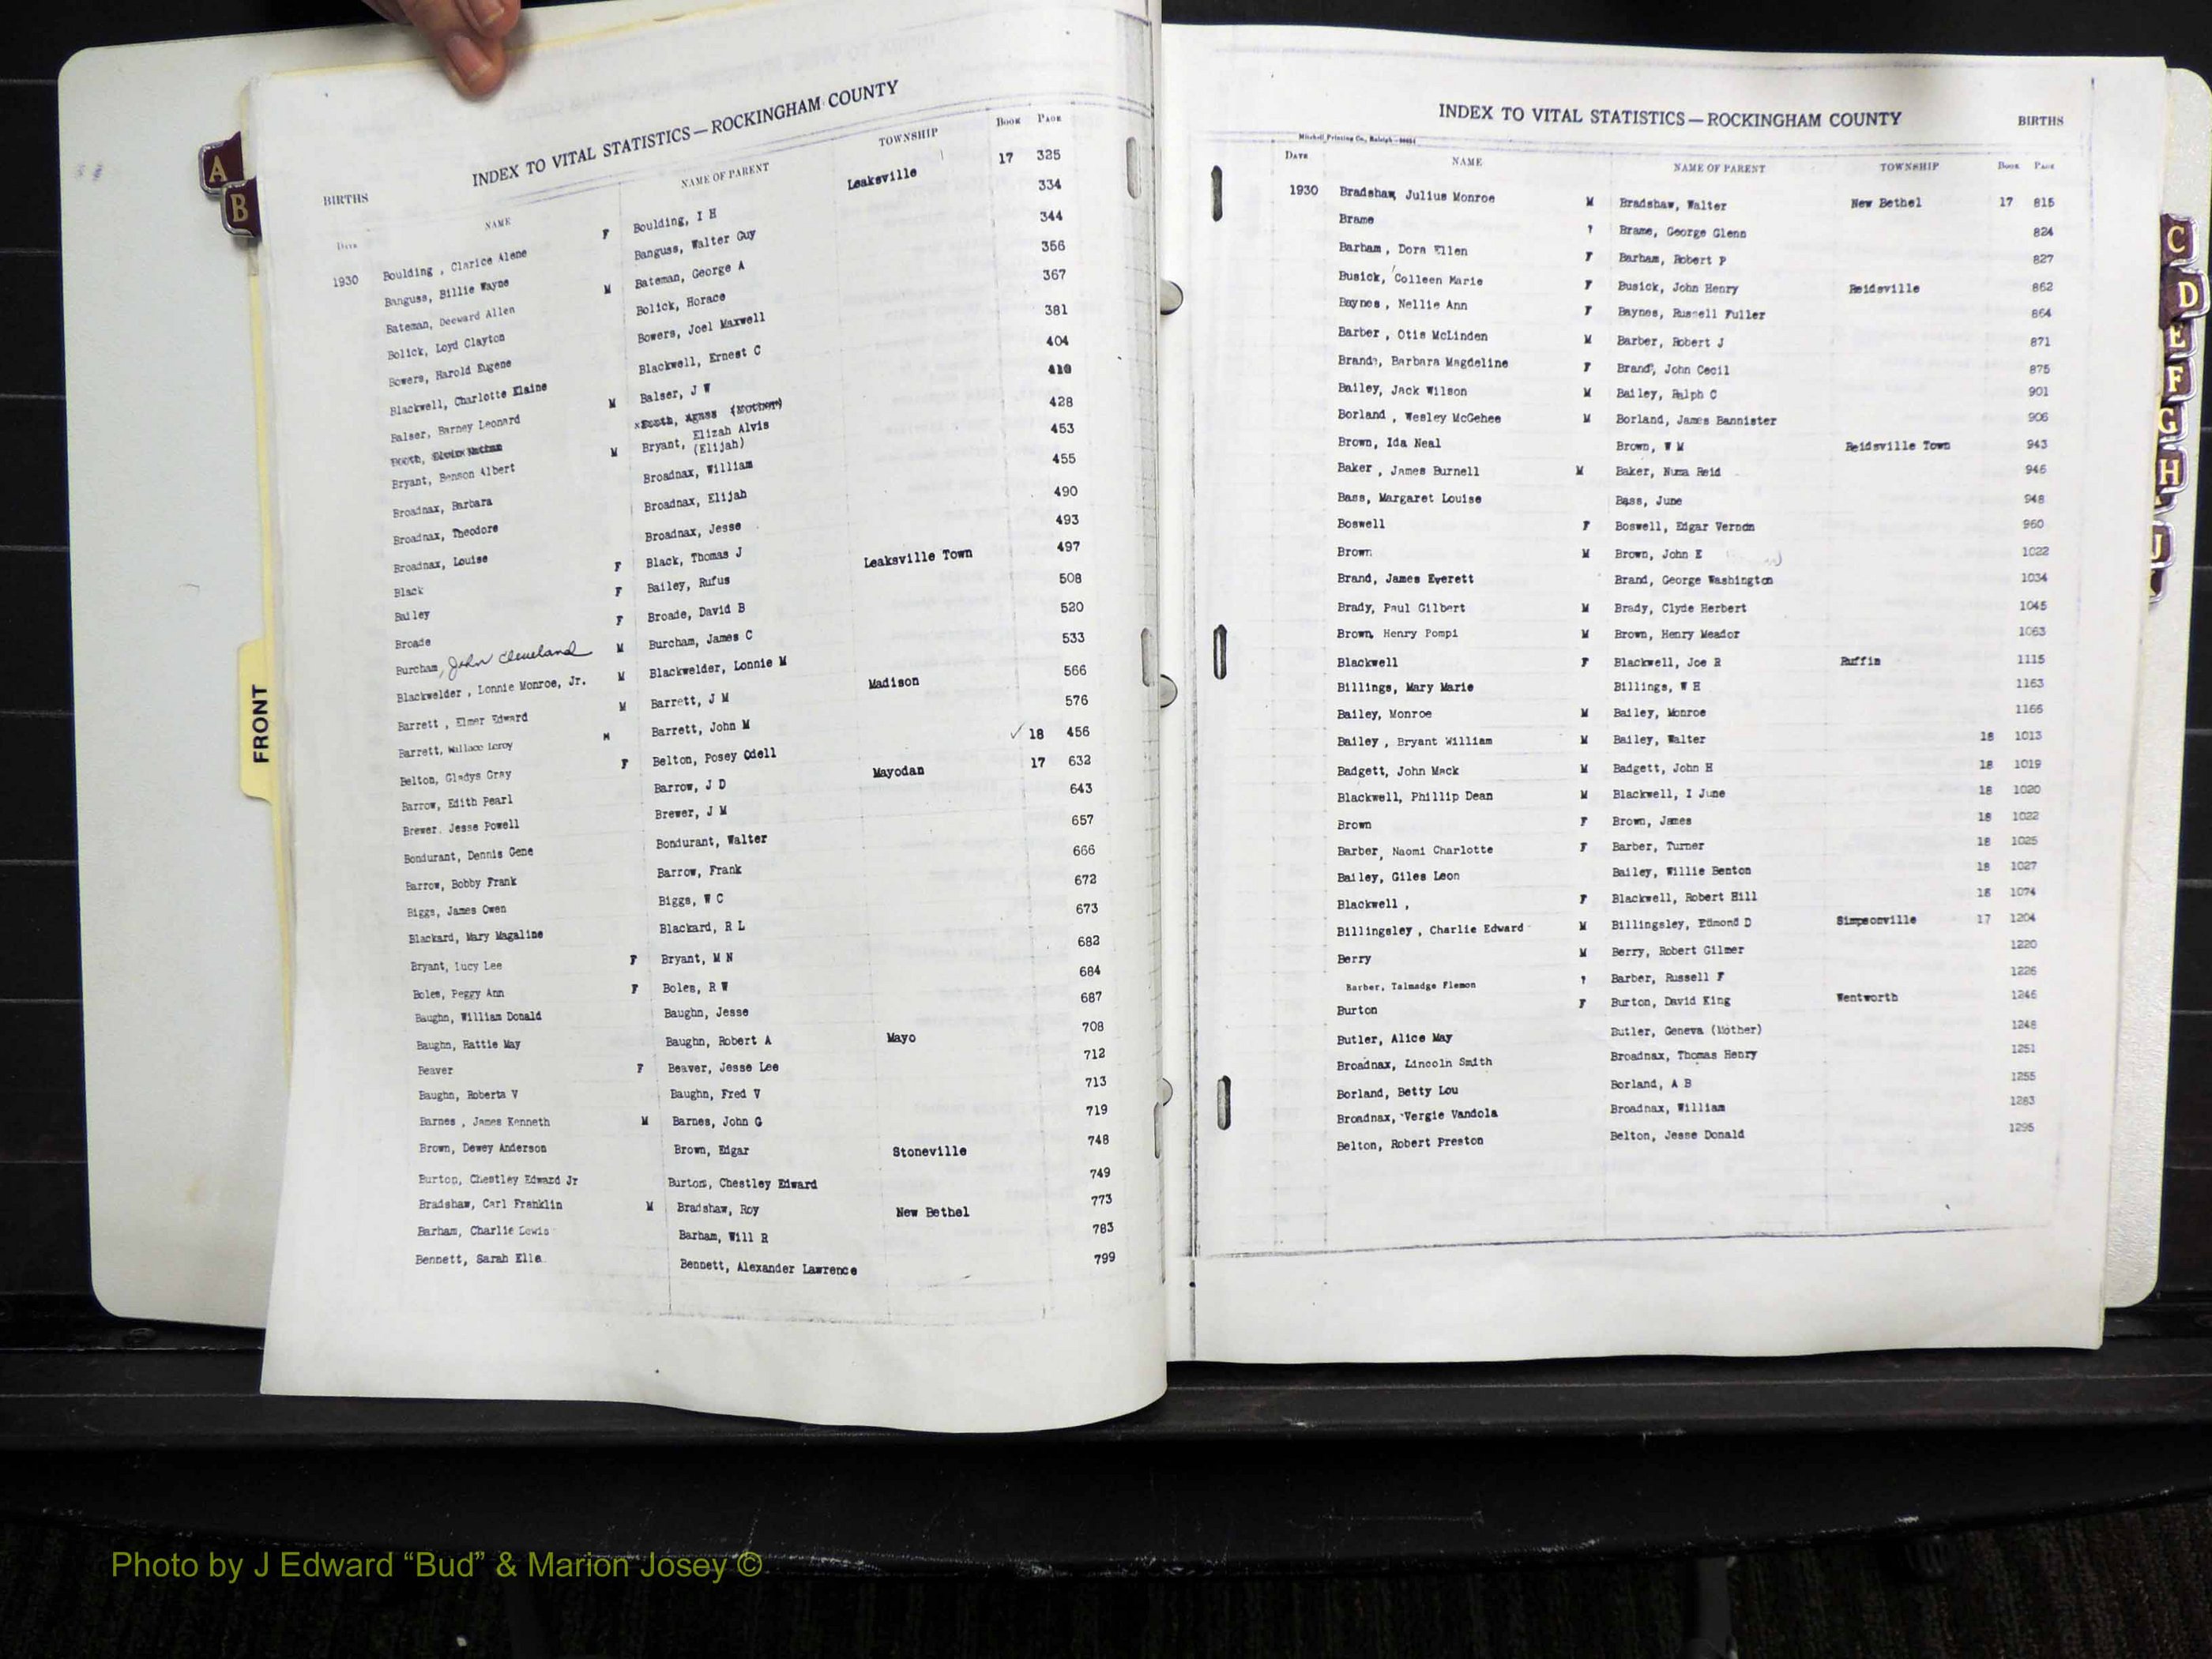 INDEX TO VITAL STATISTICS — ROCKINGHAM COUNTY
BIRTHS
DATE NAME NAME OF PARENT TOWNSHIP BOOK PAGE
1930 Boulding , Clarice Alene F Boulding, I H Leaksville 17 325
Banguss, Billie Wayne Banguss, Walter Guy 334
Bateman, Deeward Allen M Bateman, George A 344
Bolick, Loyd Clayton Bolick, Horace 356
Bowers, Harold Eugene Bowers, Joel Maxwell 367
Blackwell, Charlotte Elaine Blackwell, Ernest C 381
Balser, Barney Leonard M Balser, J W 404
Booth, Nathan Booth, Agnes (Mother) 410
Bryant, Benson Albert M Bryant, Elizah Alvis (Elijah) 428
Broadnax, Barbara Broadnax, William 453
Broadnax, Theodore Broadnax, Elijah 455
Broadnax, Louise Broadnax, Jesse 490
Black F Black, Thomas J Leaksville Town 493
Bailey F Bailey, Rufus 497
Broade F Broade, David B 508
Burcham, John Cleveland M Burcham, James C 520
Blackwelder , Lonnie Monroe, Jr. M Blackwelder, Lonnie M 533
Barrett , Elmer Edward M Barrett, J M Madison 566
Barrett, Wallace Leroy M Barrett, John M 576
Belton, Gladys Gray F Belton, Posey Odell ✓ 18 456
Barrow, Edith Pearl Barrow, J D Mayodan 17 632
Brewer. Jesse Powell Brewer, J M 643
Bondurant, Dennis Gene Bondurant, Walter 657
Barrow, Bobby Frank Barrow, Frank 666
Biggs, James Owen Biggs, W C 672
Blackard, Mary Magaline Blackard, R L 673
Bryant, Lucy Lee F Bryant, M N 682
Boles, Peggy Ann F Boles, R W 684
Baughn, William Donald Baughn, Jesse 687
Baughn, Hattie May Baughn, Robert A Mayo 708
Beaver F Beaver, Jesse Lee 712
Baughn, Roberta V Baughn, Fred V 713
Barnes , James Kenneth M Barnes, John G 719
Brown, Dewey Anderson Brown, Edgar Stoneville 748
Burton, Chestley Edward Jr Burton, Chestley Edward 749
Bradshaw, Carl Franklin M Bradshaw, Roy New Bethel 773
Barham, Charlie Lewis Barham, Will R 783
Bennett, Sarah Ella Bennett, Alexander Lawrence 799
INDEX TO VITAL STATISTICS — ROCKINGHAM COUNTY BIRTHS
Mitchell Printing Co., Raleigh
DATE NAME NAME OF PARENT TOWNSHIP BOOK PAGE
1930 Bradshaw, Julius Monroe M Bradshaw, Walter New Bethel 17 815
Brame ? Brame, George Glenn 824
Barham , Dora Ellen F Barham, Robert P 827
Busick, Colleen Marie F Busick, John Henry Reidsville 862
Baynes , Nellie Ann F Baynes, Russell Fuller 864
Barber , Otis McLinden M Barber, Robert J 871
Brand, Barbara Magdeline F Brand, John Cecil 875
Bailey, Jack Wilson M Bailey, Ralph C 901
Borland , Wesley McGehee M Borland, James Bannister 906
Brown, Ida Neal Brown, W M Reidsville Town 943
Baker , James Burnell M Baker, Numa Reid 946
Bass, Margaret Louise Bass, June 948
Boswell F Boswell, Edgar Vernon 960
Brown M Brown, John E 1022
Brand, James Everett Brand, George Washington 1034
Brady, Paul Gilbert M Brady, Clyde Herbert 1045
Brown, Henry Pompi M Brown, Henry Meador 1063
Blackwell F Blackwell, Joe R Ruffin 1115
Billings, Mary Marie Billings, W H 1163
Bailey, Monroe M Bailey, Monroe 1166
Bailey , Bryant William M Bailey, Walter 18 1013
Badgett, John Mack M Badgett, John H 18 1019
Blackwell, Phillip Dean M Blackwell, I June 18 1020
Brown F Brown, James 18 1022
Barber, Naomi Charlotte F Barber, Turner 18 1025
Bailey, Giles Leon Bailey, Willie Benton 18 1027
Blackwell , F Blackwell, Robert Hill 18 1074
Billingsley , Charlie Edward M Billingsley, Edmond D Simpsonville 17 1204
Berry M Berry, Robert Gilmer 1220
Barber, Talmadge Flemon ? Barber, Russell F 1226
Burton F Burton, David King Wentworth 1246
Butler, Alice May Butler, Geneva (Mother) 1248
Broadnax, Lincoln Smith Broadnax, Thomas Henry 1251
Borland, Betty Lou Borland, A B 1255
Broadnax, Vergie Vandola Broadnax, William 1283
Belton, Robert Preston Belton, Jesse Donald 1295
A
B
FRONT
C
D
E
F
G
H
J
Photo by J Edward “Bud” & Marion Josey ©